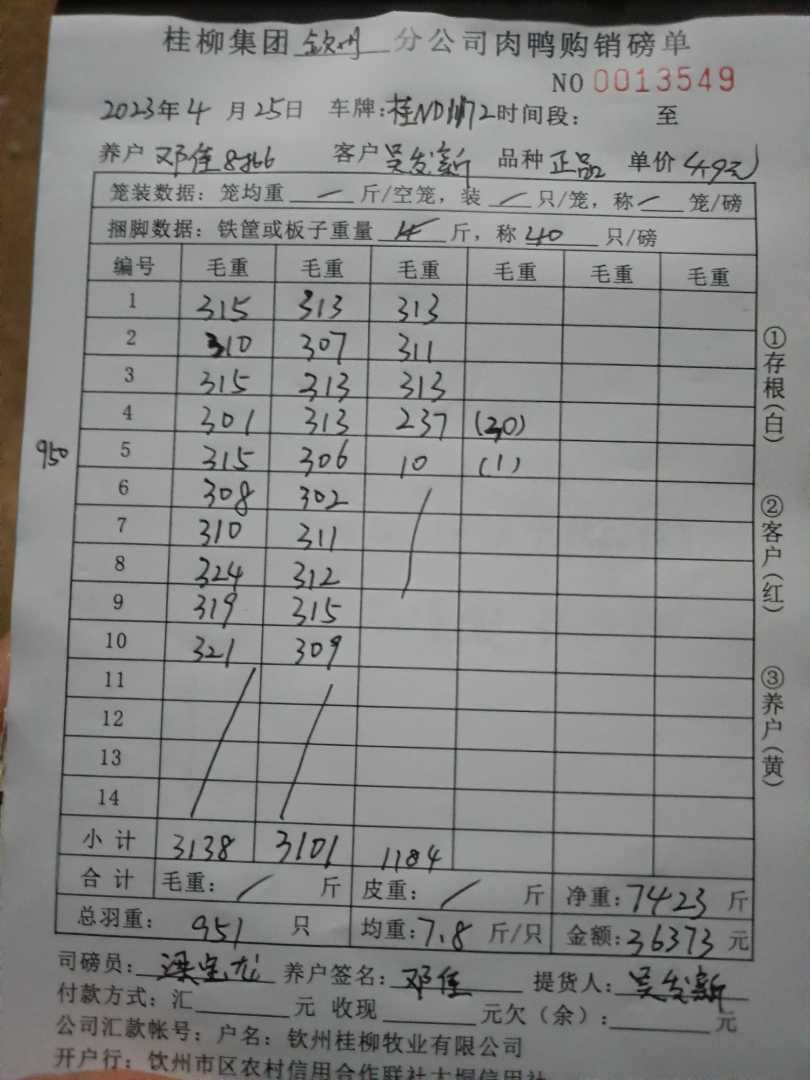 桂柳集团 钦州 分公司肉鸭购销磅单
NO 0013549
2023年4月25日 车牌:桂ND1172 时间段: 至
养户 邓佳8366 客户 吴发新 品种 正品 单价 4.9元
笼装数据:笼均重 一 斤/空笼,装 / 只/笼,称 一 笼/磅
捆脚数据:铁筐或板子重量 斤,称 40 只/磅
编号 毛重 毛重 毛重 毛重 毛重 毛重
1 315 313 313
2 310 307 311
3 315 313 313
4 301 313 237 (30)
950
5 315 306 10 (1)
6 308 302
7 310 311
8 324 312
9 319 315
10 321 309
11
12
13
14
小计 3138 3101 1184
合计 毛重: / 斤 皮重: / 斤 净重:7423 斤
总羽重: 951 只 均重:7.8 斤/只 金额:36373 元
司磅员: 养户签名: 邓佳 提货人: 吴发新
付款方式:汇 元 收现 元欠(余): 元
公司汇款帐号:户名:钦州桂柳牧业有限公司
开户行:钦州市区农村信用合作联社大垌信用社
①存根(白)
②客户(红)
③养户(黄)